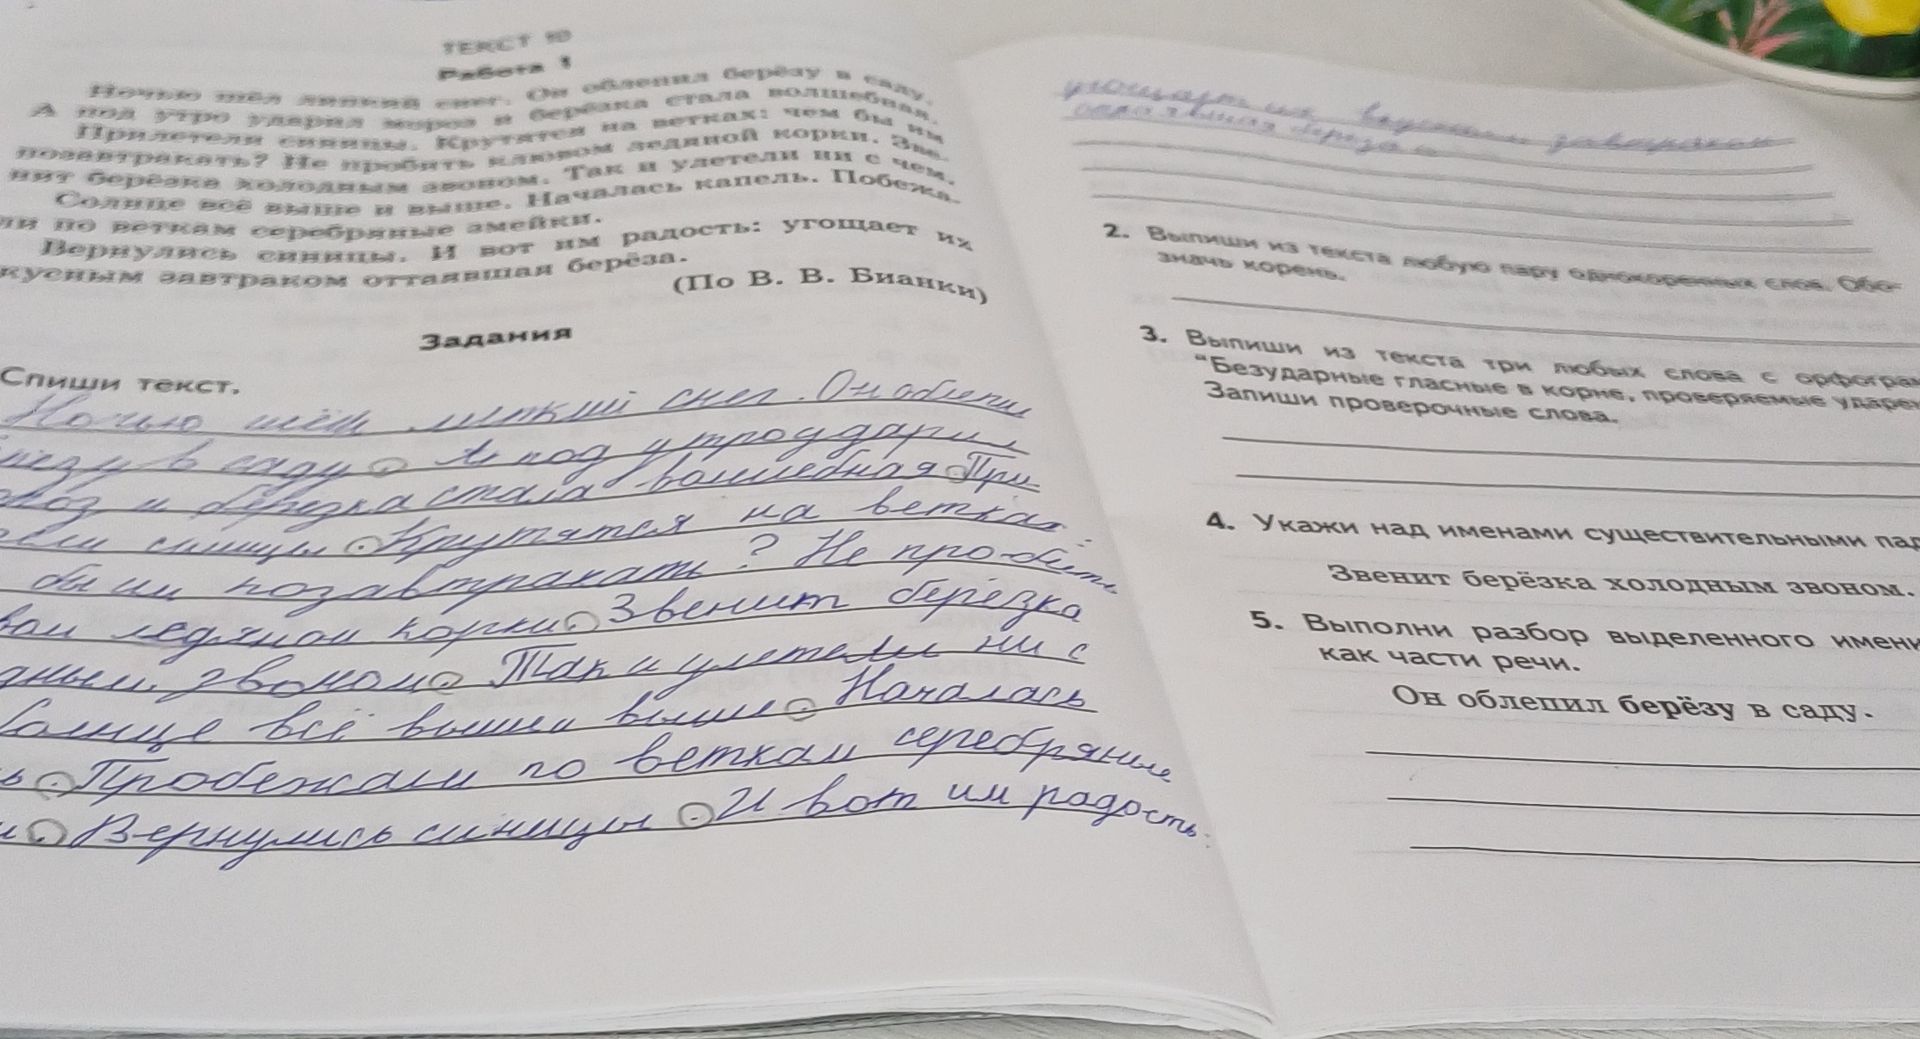 ТЕКСТ 10
Работа 1
Ночью шёл липкий снег. Он облепил берёзу в саду.
А под утро ударил мороз и берёзка стала волшебная.
Прилетели синицы. Крутятся на ветках: чем бы им
позавтракать? Не пробить клювом ледяной корки. Зве-
нит берёзка холодным звоном. Так и улетели ни с чем.
Солнце всё выше и выше. Началась капель. Побежа-
ли по веткам серебряные змейки.
Вернулись синицы. И вот им радость: угощает их
кусным завтраком оттаявшая берёза.
(По В. В. Бианки)
Задания
Спиши текст.
Ночью шёл липкий снег. Он облепи
в саду. А под утро ударил
и берёзка стала волшебная. При-
синицы. Крутятся на ветках:
бы им позавтракать? Не пробить
вом ледяной корки. Звенит берёзка
дным звоном. Так и улетели ни с
Солнце всё выше и выше. Началась
ь. Пробежали по веткам серебряные
и. Вернулись синицы. И вот им радость:
угощает их вкусным завтраком
берёза.
2. Выпиши из текста любую пару однокоренных слов. Обо-
значь корень.
3. Выпиши из текста три любых слова с орфограм
"Безударные гласные в корне, проверяемые ударен
Запиши проверочные слова.
4. Укажи над именами существительными пад
Звенит берёзка холодным звоном.
5. Выполни разбор выделенного имени
как части речи.
Он облепил берёзу в саду.